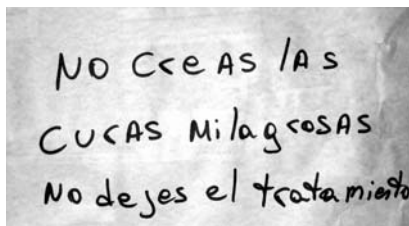 NO CreAS lAs
CUrAS MilagrosAS
No dejes el tratamiento